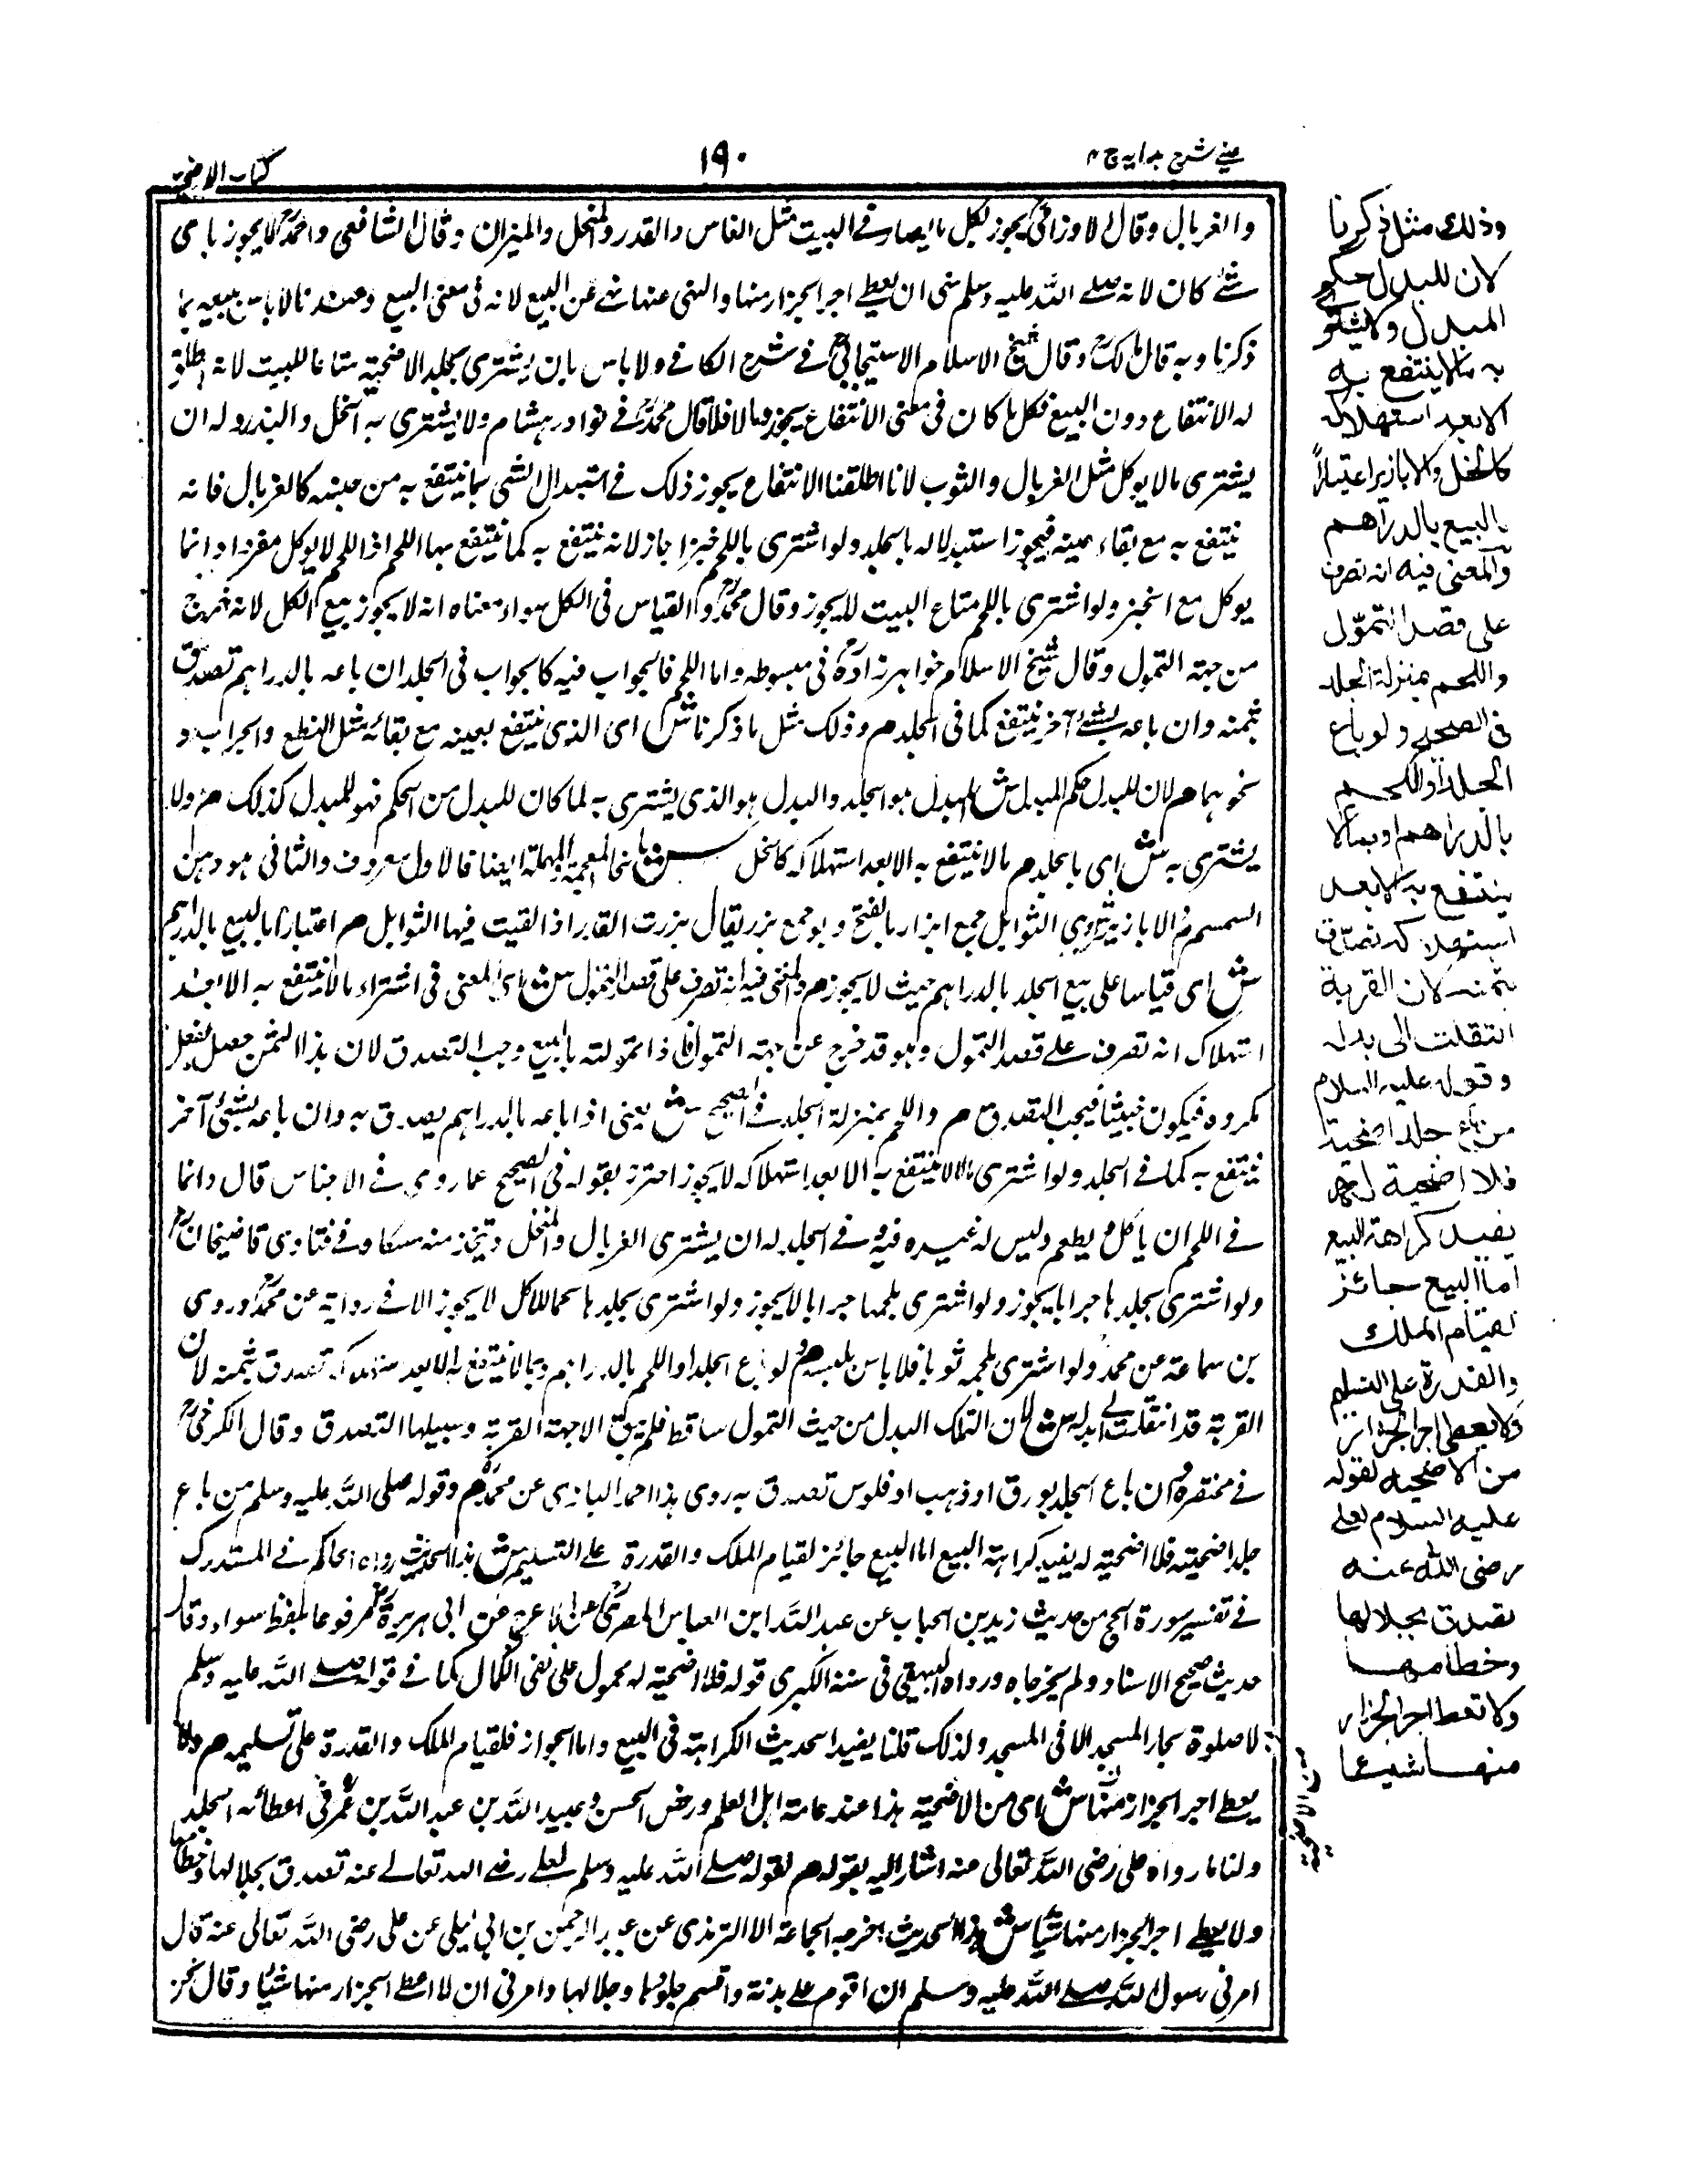 عيني شرح هدايه ج ٤
١٩٠
كتاب الاضحية
والغربال وقال الاوزاعي يجوز بكل ما يصار في البيت مثل الفاس والقدر والمنخل والميزان وقال الشافعي واحمد لا يجوز باي
شئ كان لانه صلى الله عليه وسلم نهى ان يعطى اجر الجزار منها والنهي عنها نهي عن البيع لانه في معنى البيع وعندنا لا باس ببيعه بما
ذكرنا وبه قال مالك وقال شيخ الاسلام الاسبيجابي في شرح الكافي ولا باس بان يشتري بجلد الاضحية متاعا للبيت لانه اطلق
له الانتفاع دون البيع فكل ما كان في معنى الانتفاع يجوز وما لا فلا قال محمد في نوادر هشام ولا يشتري به الخل والبذر وله ان
يشتري ما لا يوكل مثل الغربال والثوب لانا اطلقنا الانتفاع يجوز ذلك في استبدال الشي بما ينتفع به من جنسه كالغربال فانه
ينتفع به مع بقاء عينه فيجوز استبدلاله بالجلد ولو اشترى باللحم خبزا جاز لانه ينتفع به كما ينتفع بها اللحم اذ اللحم لا يوكل مفردا وانما
يوكل مع الخبز ولو اشترى باللحم متاع البيت لا يجوز وقال محمد والقياس في الكل سواء ومعناه انه لا يجوز بيع الكل لانه خرج
من جهة التمول وقال شيخ الاسلام خواهرزاده في مبسوطه واما اللحم فالجواب فيه كالجواب في الجلد ان باعه بالدراهم تصدق
بثمنه وان باعه بشئ آخر ينتفع كما في الجلد م وذلك مثل ما ذكرنا ش اي الذي ينتفع بعينه مع بقائه مثل النطع والجراب و
نحوهما م لان للبدل حكم المبدل ش المبدل هو الجلد والبدل هو الذي يشترى به لما كان للبدل من الحكم فهو للمبدل كذلك م ولا
يشتري به ش اي بالجلد م ما لا ينتفع به الا بعد استهلاكه كالخل ش بالخاء المعجمة والمهملة ايضا فالاول معروف والثاني هو دهن
السمسم م والابازير ش وهي التوابل جمع ابزار بالفتح وهو جمع بزر يقال بزرت القدر اذا القيت فيها التوابل م اعتبارا بالبيع بالدراهم
ش اي قياسا على بيع الجلد بالدراهم حيث لا يجوز م والمعنى فيه انه تصرف على قصد التمول ش اي المعنى في اشتراء ما لا ينتفع به الا بعد
استهلاك انه تصرف على قصد التمول وهو قد خرج عن جهة التمول فاذا تمولته بالبيع وجب التصدق لان هذا الثمن حصل بفعل
مكروه فيكون خبيثا فيجب التصدق م واللحم بمنزلة الجلد في الصحيح ش يعني اذا باعه بالدراهم يصدق به وان باعه بشئ آخر
ينتفع به كما في الجلد ولو اشترى ما لا ينتفع به الا بعد استهلاكه لا يجوز احترز بقوله في الصحيح عما روي في الاجناس قال وانما
في اللحم ان ياكل م يطعم وليس له غيره فيه وفي الجلد له ان يشتري الغربال والمنخل وتيخذ منه مسكا وفي فتاوى قاضيخان
ولو اشترى بجلدها جرابا يجوز ولو اشترى بلحمها جرابا لا يجوز ولو اشترى بجلدها لحما للاكل لا يجوز الا في رواية عن محمد وروى
بن سماعة عن محمد ولو اشترى بلحمه ثوبا فلا باس بلبسه م ولو باع الجلد او اللحم بالدراهم وبما لا ينتفع به الا بعد استهلاكه تصدق بثمنه لان
القربة قد انتقلت الى بدله ش لان التملك البدل من حيث التمول ساقط فلم يبق الا جهة القربة وسبيلها التصدق وقال الكرخي
في مختصره وان باع الجلد بورق او ذهب او فلوس تصدق به روى هذا احمد البازي عن محمد م وقوله صلى الله عليه وسلم من باع
جلد اضحيته فلا اضحية له يفيد كراهة البيع اما البيع جائز لقيام الملك والقدرة على التسليم ش هذا الحديث رواه الحاكم في المستدرك
في تفسير سورة الحج من حديث زيد بن الحباب عن عبد الله ابن العباس المصري عن الاعرج عن ابي هريرة مرفوعا بلفظ سواء وقال
حديث صحيح الاسناد ولم يخرجاه ورواه البيهقي في سننه الكبرى قوله فلا اضحية له محمول على نفي الكمال كما في قوله صلى الله عليه وسلم
لا صلوة لجار المسجد الا في المسجد ولذلك قلنا يفيد الحديث الكراهة في البيع واما الجواز فلقيام الملك والقدرة على تسليمه م ولا
يعطى اجر الجزار منها ش اي من الاضحية هذا عند عامة اهل العلم ورخص الحسن وعبيد الله بن عبد الله بن عمر في اعطائه الجلد
ولنا ما رواه علي رضى الله تعالى عنه اشار اليه بقوله م لقوله صلى الله عليه وسلم لعلي رضي الله تعالى عنه تصدق بجلالها وخطامها
ولا يعطى اجر الجزار منها شيئا ش هذا الحديث اخرجه الجماعة الا الترمذي عن عبد الرحمن بن ابي ليلى عن علي رضى الله تعالى عنه قال
امرني رسول الله صلى الله عليه وسلم ان اقوم على بدنة واقسم جلودها وجلالها وامرني ان لا اعطي الجزار منها شيئا وقال نحن
وذلك مثل ذكرنا
لان للبدل حكم
المبدل ولا يشتري
به ما لا ينتفع به
الا بعد استهلاكه
كالخل والابازير اعتبارا
بالبيع بالدراهم
والمعنى فيه انه تصرف
على قصد التمول
واللحم بمنزلة الجلد
في الصحيح ولو باع
الجلد او اللحم
بالدراهم او بما لا
ينتفع به الا بعد
استهلاكه تصدق
بثمنه لان القربة
انتقلت الى بدله
وقوله عليه السلام
من باع جلد اضحيته
فلا اضحية له
يفيد كراهة البيع
اما البيع جائز
لقيام الملك
والقدرة على التسليم
ولا يعطى اجر الجزار
من الاضحية لقوله
عليه السلام لعلي
رضى الله عنه
تصدق بجلالها
وخطامها
ولا تعط اجر الجزار
منها شيئا
من الاضحية